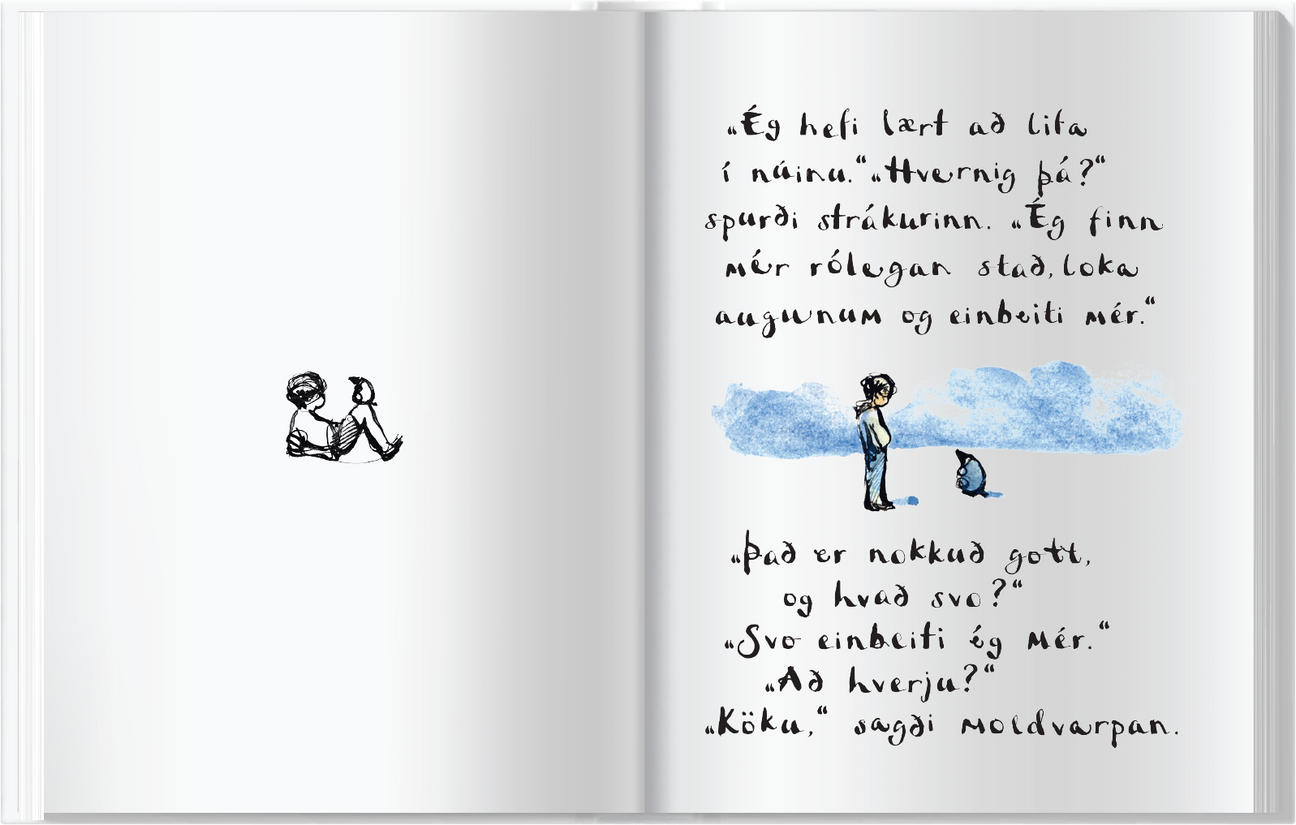 „Ég hefi lært að lifa
í núinu.“ „Hvernig þá?“
spurði strákurinn. „Ég finn
mér rólegan stað, loka
augunum og einbeiti mér.“
„Það er nokkuð gott,
og hvað svo?“
„Svo einbeiti ég mér.“
„Að hverju?“
„Köku,“ sagði moldvarpan.